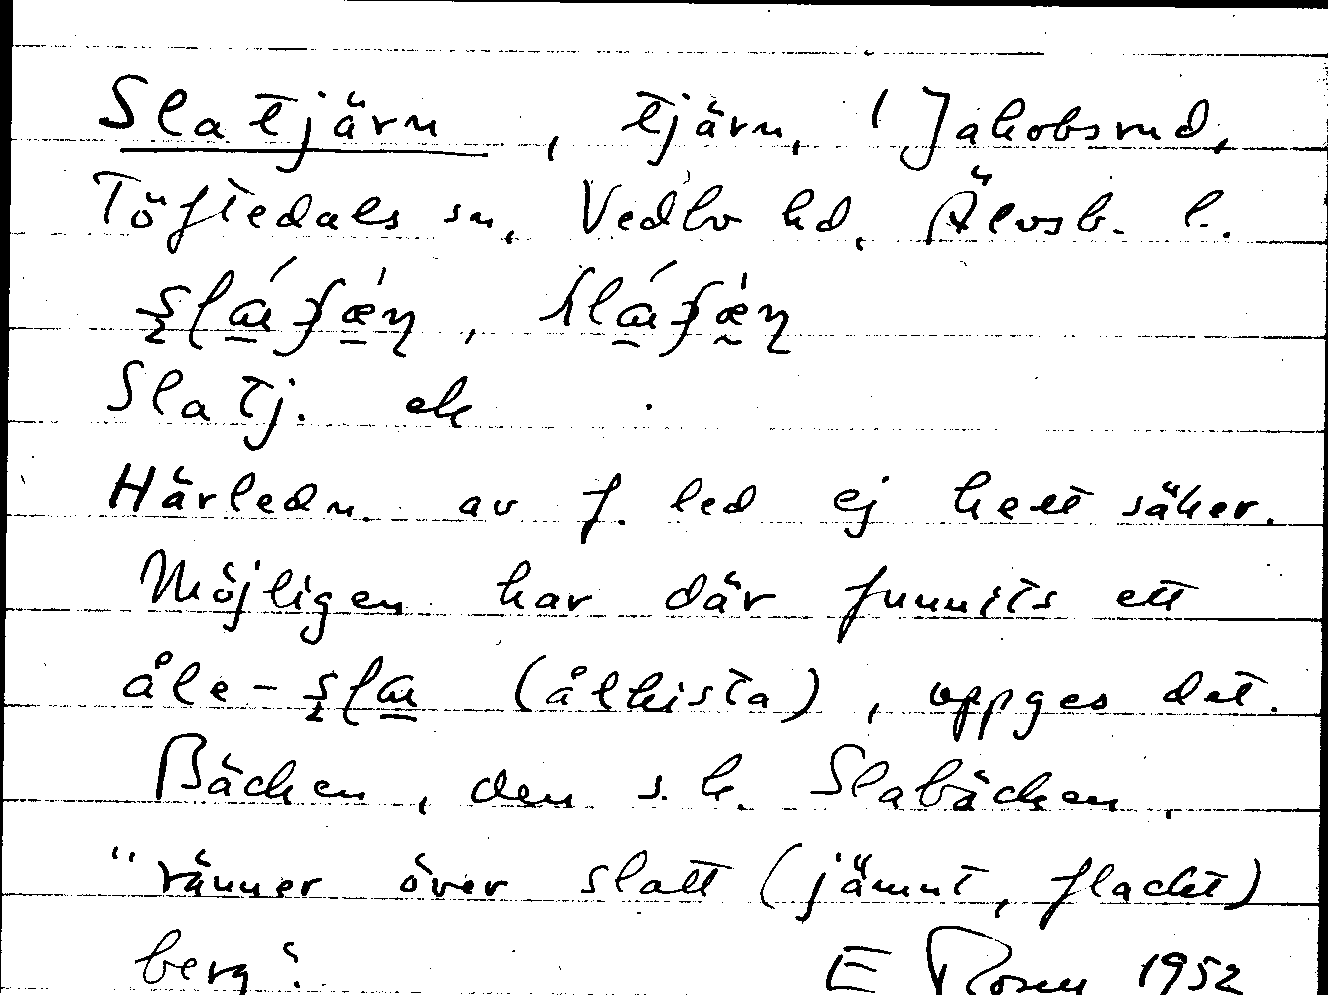 Slatjärn, tjärn, i Jakobsrud,
Töftedals sn, Vedbo hd, Älvsb. l.
Slatj. ek
Härledn. av f. led ej helt säker.
Möjligen har där funnits ett
åle- (ålkista), uppges det.
Bäcken, den s.k. Slabäcken,
"ränner över slatt (jämnt, flackt)
berg".
E Rosen 1952